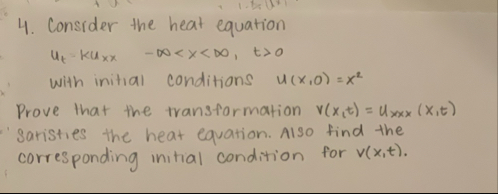 4. Consider the heat equation
u_t = ku_xx  -∞ < x < ∞, t>0
with initial conditions u(x,0) = x²
Prove that the transformation v(x,t) = u_xxx (x,t)
satisties the heat equation. Also find the
corresponding initial condition for v(x,t).